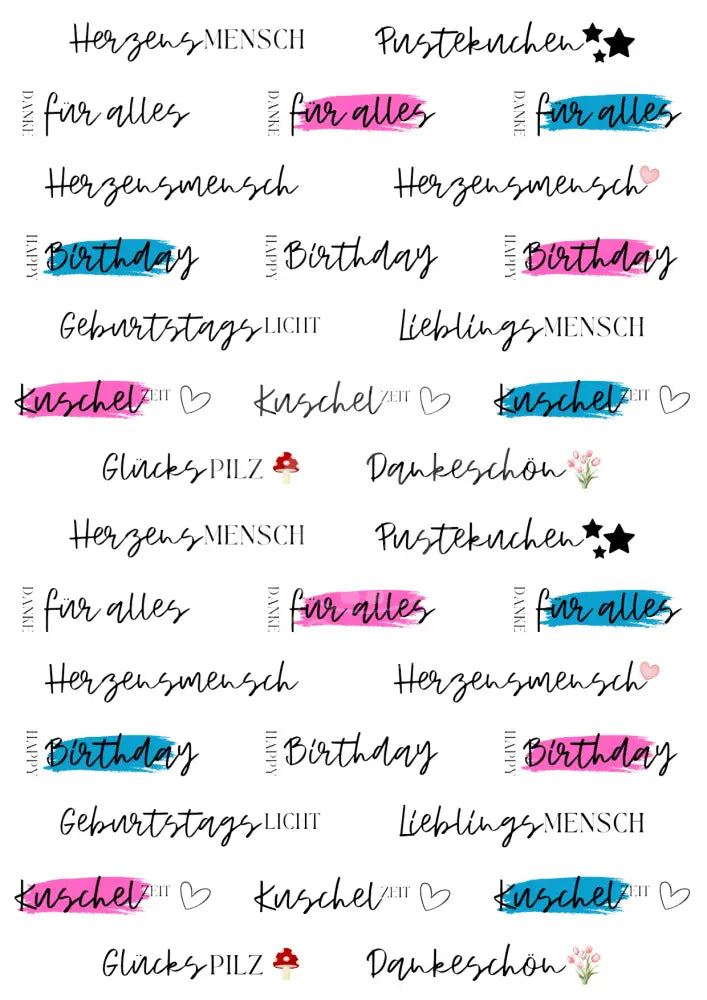 HerzensMENSCH Pustekuchen
DANKE für alles DANKE für alles DANKE für alles
Herzensmensch Herzensmensch
HAPPY Birthday HAPPY Birthday HAPPY Birthday
GeburtstagsLICHT LieblingsMENSCH
KuschelZEIT KuschelZEIT KuschelZEIT
GlücksPILZ Dankeschön
HerzensMENSCH Pustekuchen
DANKE für alles DANKE für alles DANKE für alles
Herzensmensch Herzensmensch
HAPPY Birthday HAPPY Birthday HAPPY Birthday
GeburtstagsLICHT LieblingsMENSCH
KuschelZEIT KuschelZEIT KuschelZEIT
GlücksPILZ Dankeschön